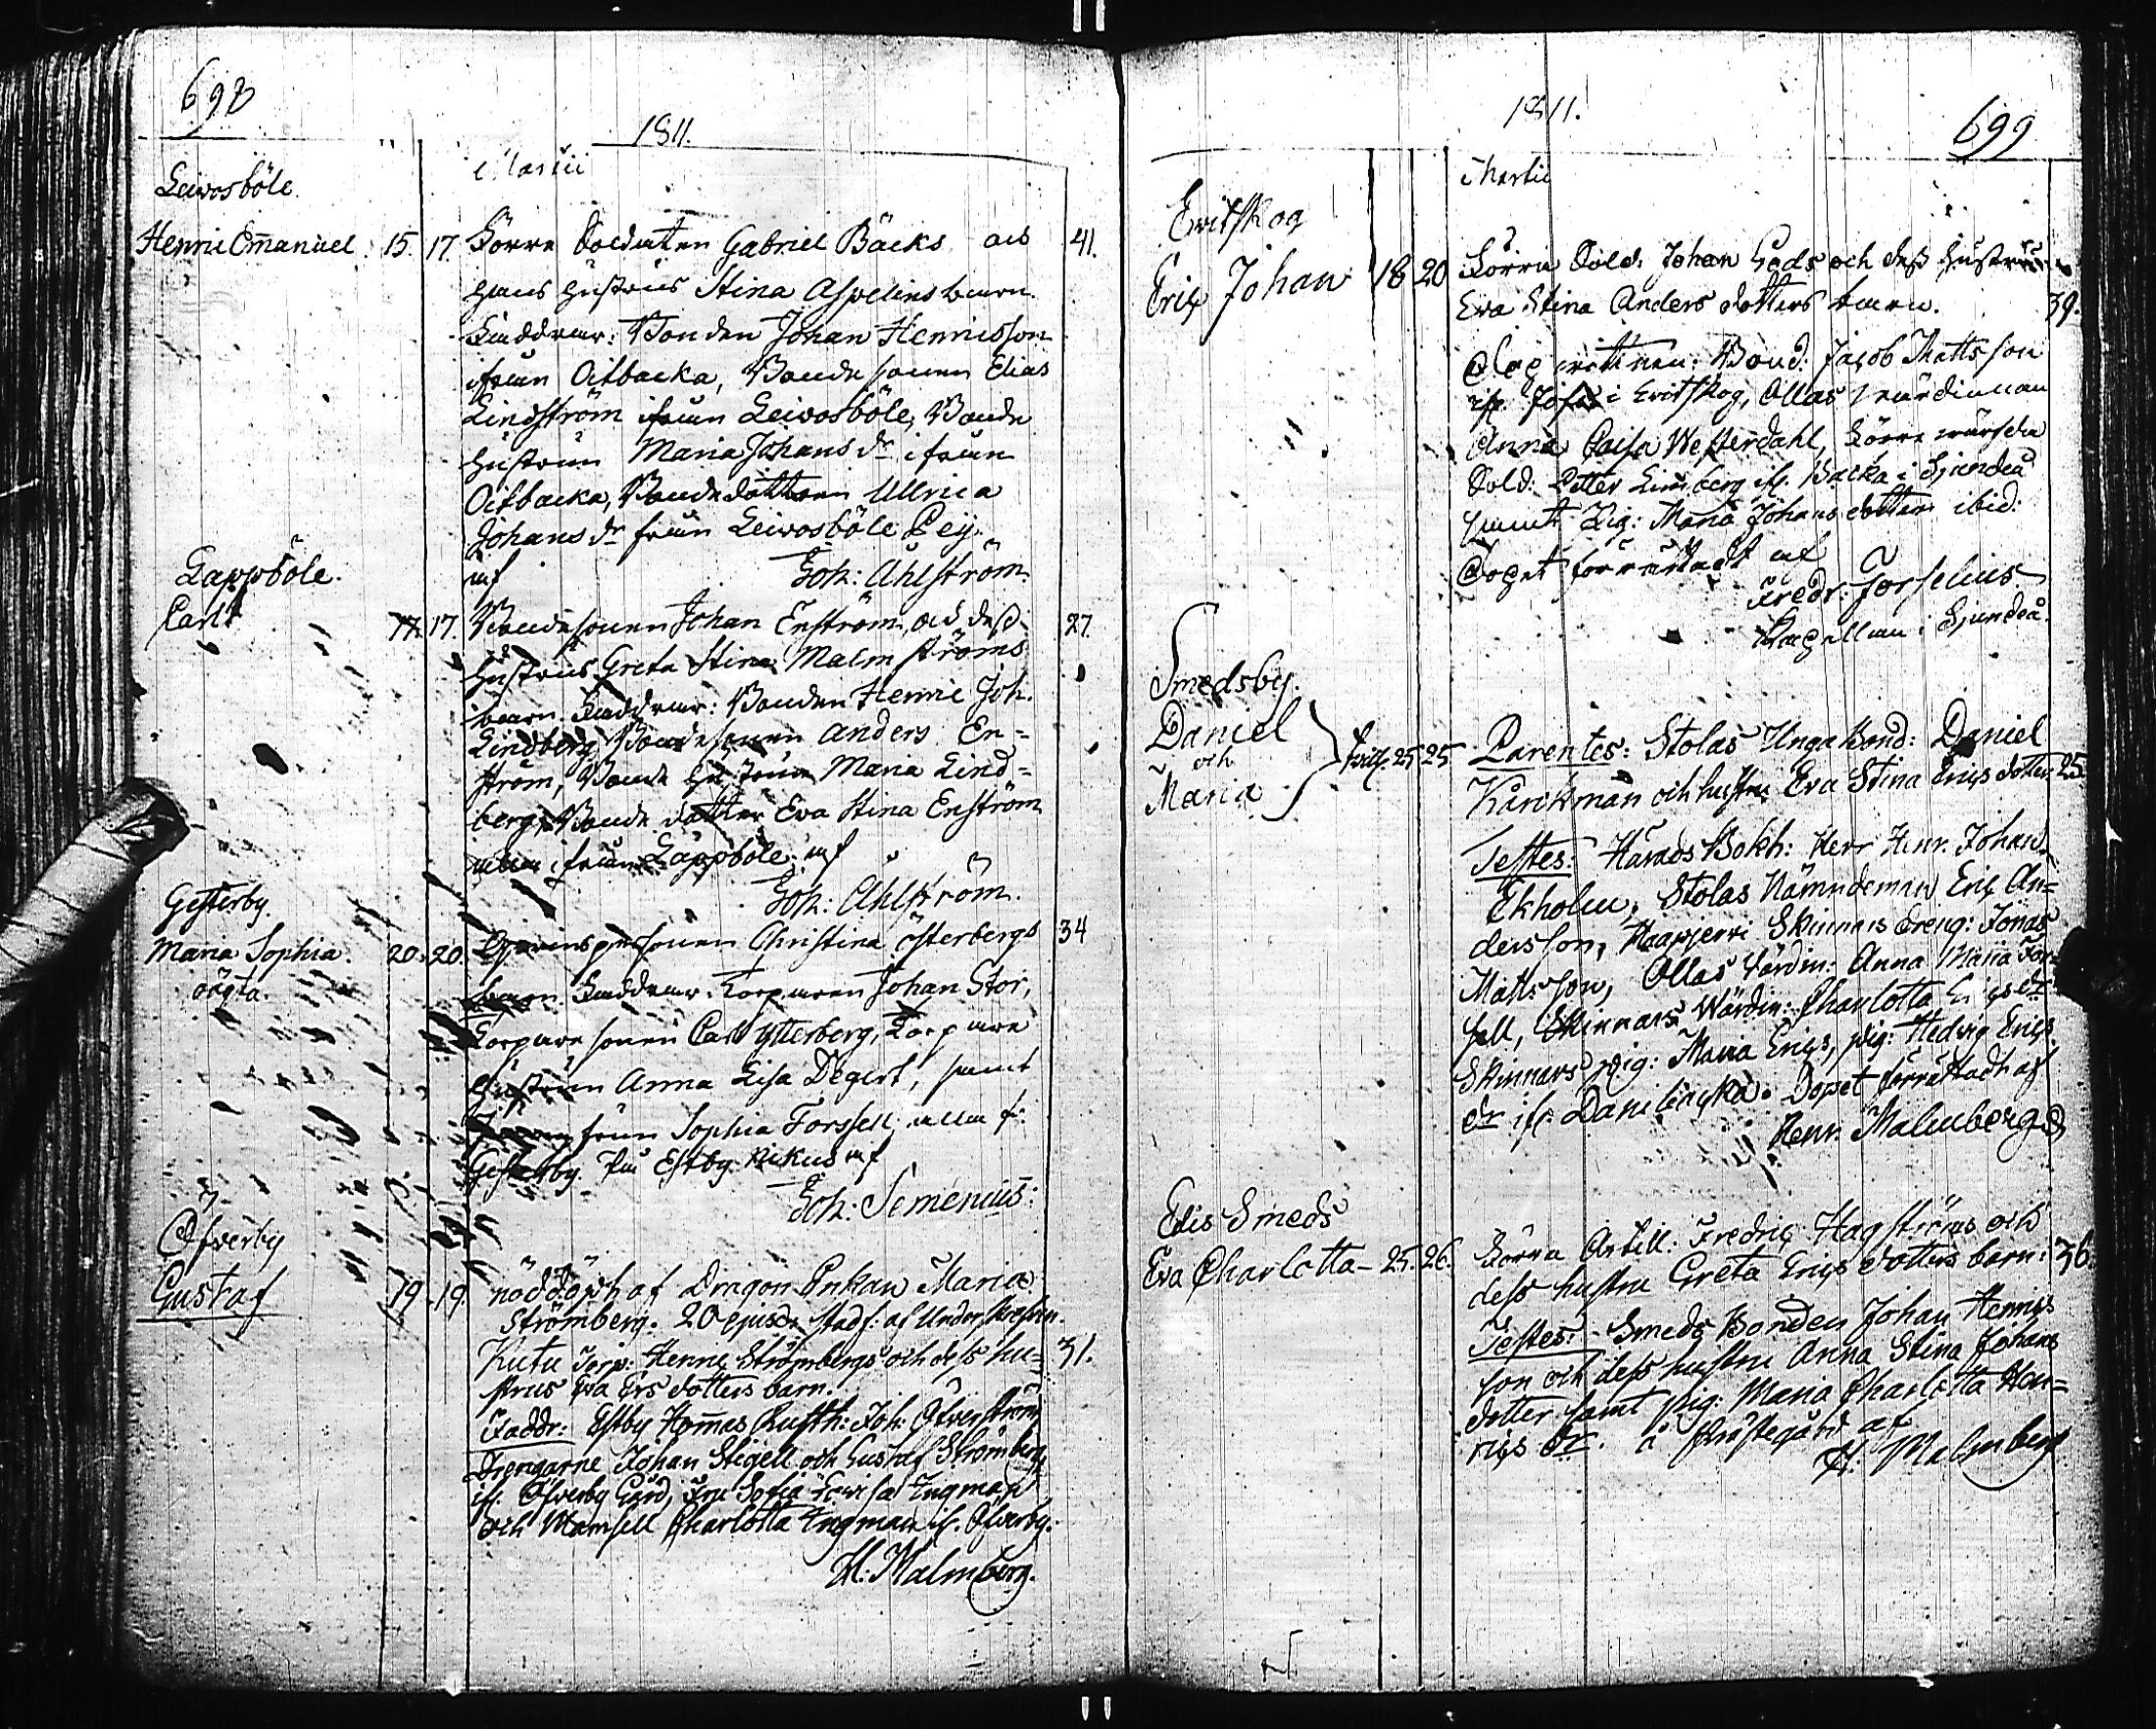 698
1811.
Martii
Leivosböle.
Henric Emanuel. 15. 17. Förre Soldaten Gabriel Bäcks och 41.
hans hustrus Stina Aspelins barn.
Faddrar: Bonden Johan Henricsson
ifrån Oitbacka, Bonde sonen Elias
Lindström ifrån Leivosböle, Bonde
hustrun Maria Johans dr ifrån
Oitbacka, Bondedottren Ullrica
Johans dr från Leivosböle
af Joh: Ahlström.
Lappböle.
Carl 17. 17. Bondesonen Johan Enström, och dess 27.
hustrus Greta Stina Malmströms
barn. Faddrar: Bonden Henric Joh.
Lindberg, Bondesonen Anders En=
ström, Bonde hustrun Maria Lind=
berg, Bonde dotter Eva Stina Enström
alla ifrån Lappböle. af
Joh: Ahlström.
Gesterby.
Maria Sophia. 20. 20. Christina Österbergs 34
oägta.
barn. Faddrar: Torparen Johan Stor,
Torpare sonen Carl Ytterberg, Torpare
hustrun Anna Lisa Degert, samt
Sophia Forssell, alla fr.
Gesterby. Estby af
Joh: Semenius:
Öfverby
Gustaf 19. 19. nöddöpt af Dragon Enkan Maria
Strömberg. 20 ejusd. stadf: af Underskrefven.
Kutu Torp: Henric Strömbergs och dess hu= 31.
strus Eva Ers dotters barn.
Faddr: Estby Hommas Rusth: Joh: Öfverström
Drengarne Johan Stigell och Gustaf Strömberg
if. Öfverby Gård, Fru Sofia Lovisa Ingman
och Mamsell Charlotta Ingman if. Öfverby.
H: Malmberg.
1811.
699
Martii
Evitskog
Eric Johan 18 20 Förra Sold: Johan Gads och dess hustrus
Eva Stina Anders dotters barn. 39.
Bond: Jacob Mattsson
i Evitskog, Ollas värdinnan
Anna Caisa Westerdahl,
Sold: Petter Limberg if. Backa i Sjundeå
samt Pig: Maria Johans dotter ibid:
Dopet förrättadt af
Fredr: Forselius
Capellan i Sjundeå.
Smedsby.
Daniel
och
Maria } tvill. 25 25 Parentes: Stolas Unga Bond: Daniel
Karckman och hustru Eva Stina Erics dotter. 25.
Testes: Härads Bokh: Herr Henr. Johan
Ekholm, Stolas Nämndeman Eric An=
dersson, Haapjervi Skinnars Dreng: Jonas
Matts son, Ollas Värdin: Anna Maria For=
sell, Skinnars Värdin: Charlotta Erics dr
Skinnars pig: Maria Erics, pig: Hedvig Erics
dr if: Danilbacka. Dopet förrättadt af
Henr. Malmberg
Edis Smeds
Eva Charlotta - 25. 26. Förra Artill: Fredric Hagströms och
dess hustru Greta Erics dotters barn: 36.
Testes: Smeds Bonden Johan Henrics
son och dess hustru Anna Stina Johans
dotter samt pig: Maria Charlotta Hen=
rics dr. å Prästegård af
H: Malmberg